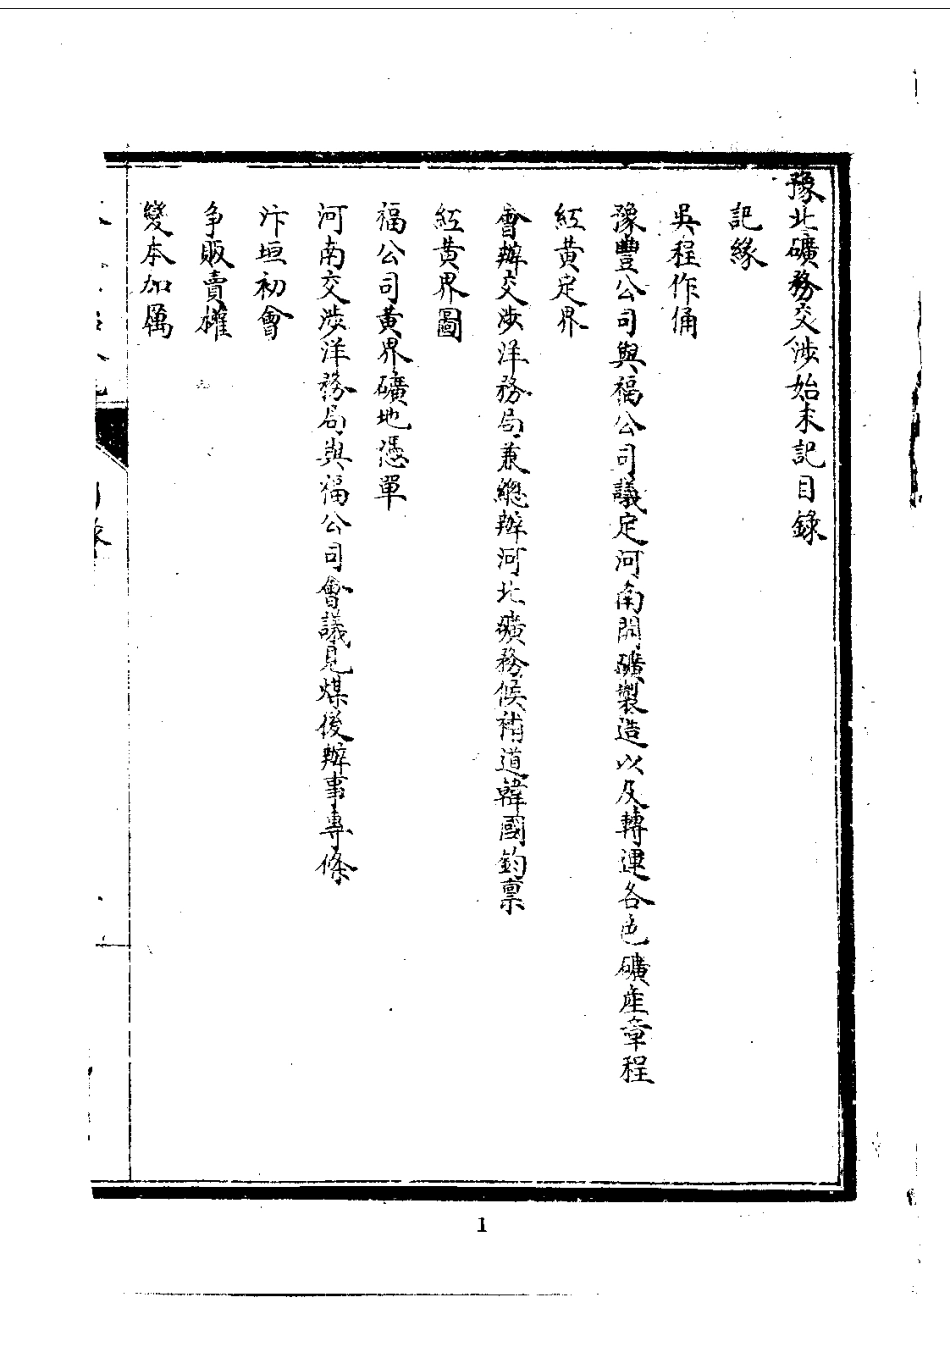 豫北礦務交涉始末記目錄
記緣
吳程作俑
豫豐公司與福公司議定河南開礦製造以及轉運各色礦產章程
紅黃定界
會辦交涉洋務局兼總辦河北礦務候補道韓國鈞稟
紅黃界圖
福公司黃界礦地憑單
河南交涉洋務局與福公司會議見煤後辦事專條
汴垣初會
爭販賣權
變本加厲
1